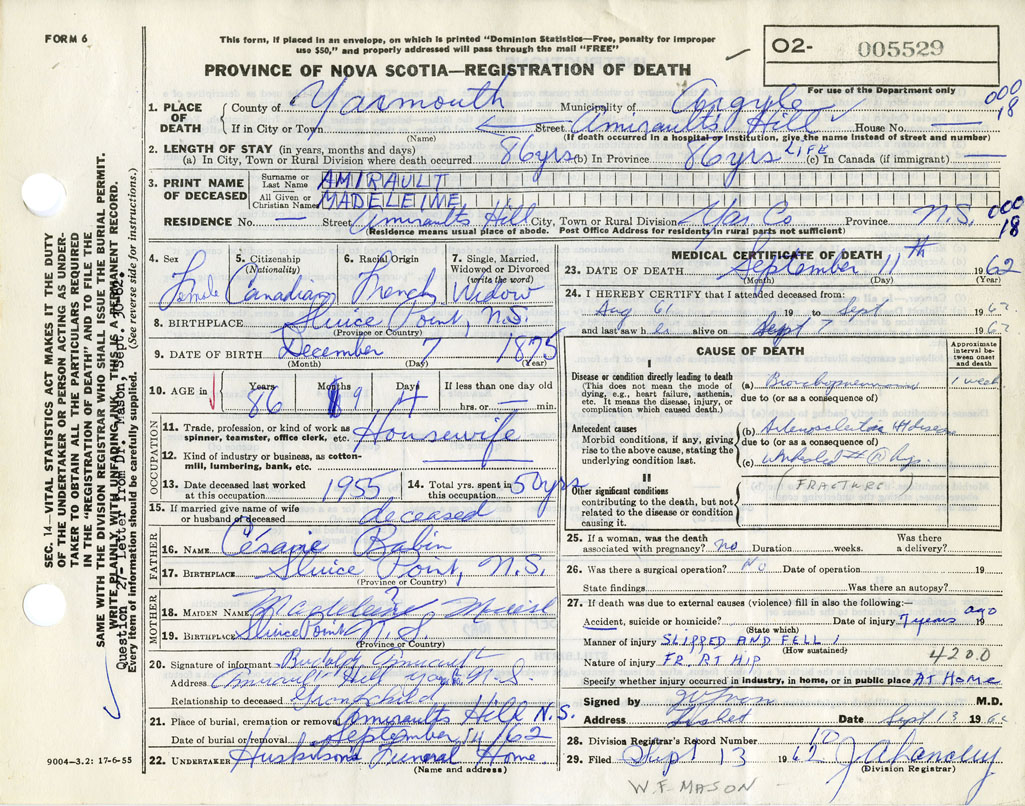 FORM 6
This form, if placed in an envelope, on which is printed "Dominion Statistics—Free, penalty for improper
use $50," and properly addressed will pass through the mail "FREE"
O2- 005529
For use of the Department only
PROVINCE OF NOVA SCOTIA—REGISTRATION OF DEATH
000
18
1. PLACE OF DEATH
County of Yarmouth Municipality of Argyle
If in City or Town Street Amiraults Hill House No. —
(Name) (If death occurred in a hospital or institution, give the name instead of street and number)
2. LENGTH OF STAY (in years, months and days)
(a) In City, Town or Rural Division where death occurred 86 yrs (b) In Province 86 yrs LIFE (c) In Canada (if immigrant) —
3. PRINT NAME OF DECEASED
Surname or Last Name AMIRAULT
All Given or Christian Names MADELEINE
RESIDENCE No. — Street Amiraults Hill City, Town or Rural Division Yar. Co. Province N.S.
(Residence means usual place of abode. Post Office Address for residents in rural parts not sufficient)
000
18
4. Sex Female
5. Citizenship (Nationality) Canadian
6. Racial Origin French
7. Single, Married, Widowed or Divorced (write the word) Widow
8. BIRTHPLACE Sluice Point, N.S.
(Province or Country)
9. DATE OF BIRTH December 7 1875
(Month) (Day) (Year)
10. AGE in Years 86 Months 9 Days 4 If less than one day old hrs. or — min.
OCCUPATION
11. Trade, profession, or kind of work as spinner, teamster, office clerk, etc. Housewife
12. Kind of industry or business, as cotton-mill, lumbering, bank, etc.
13. Date deceased last worked at this occupation 1955
14. Total yrs. spent in this occupation 50 yrs
15. If married give name of wife or husband of deceased deceased
FATHER
16. NAME Césaire Babin
17. BIRTHPLACE Sluice Point, N.S.
(Province or Country)
MOTHER
18. MAIDEN NAME
?
19. BIRTHPLACE Sluice Point N.S.
(Province or Country)
20. Signature of informant Rudolph Amirault
Address Amirault Hill N.S
Relationship to deceased Grandchild
21. Place of burial, cremation or removal Amiraults Hill N.S.
Date of burial or removal September 14 /62
22. UNDERTAKER Huskisons Funeral Home
(Name and address)
MEDICAL CERTIFICATE OF DEATH
23. DATE OF DEATH September 11th 1962
(Month) (Day) (Year)
24. I HEREBY CERTIFY that I attended deceased from:
Aug 61 19 to Sept 1962
and last saw her alive on Sept 7 1962
CAUSE OF DEATH
Approximate interval between onset and death
I
Disease or condition directly leading to death
(This does not mean the mode of dying, e.g., heart failure, asthenia, etc. It means the disease, injury, or complication which caused death.)
(a) Bronchopneumonia 1 week
due to (or as a consequence of)
Antecedent causes
Morbid conditions, if any, giving rise to the above cause, stating the underlying condition last.
(b) Arteriosclerotic Ht disease
due to (or as a consequence of)
(c) Unheald # R hip
(FRACTURE)
II
Other significant conditions
contributing to the death, but not related to the disease or condition causing it.
25. If a woman, was the death associated with pregnancy? No Duration weeks. Was there a delivery?
26. Was there a surgical operation? No Date of operation 19
State findings Was there an autopsy?
27. If death was due to external causes (violence) fill in also the following:—
Accident, suicide or homicide? Date of injury 7 years ago 19
(State which)
Manner of injury SLIPPED AND FELL
(How sustained)
4200
Nature of injury FR. RT HIP
Specify whether injury occurred in industry, in home, or in public place AT HOME
Signed by M.D.
Address Date Sept 13 1962
28. Division Registrar's Record Number
29. Filed Sept 13 1962
(Division Registrar)
W.F. MASON
9004—3.2: 17-6-55
SEC. 14—VITAL STATISTICS ACT MAKES IT THE DUTY
OF THE UNDERTAKER OR PERSON ACTING AS UNDER-
TAKER TO OBTAIN ALL THE PARTICULARS REQUIRED
IN THE "REGISTRATION OF DEATH" AND TO FILE THE
SAME WITH THE DIVISION REGISTRAR WHO SHALL ISSUE THE BURIAL PERMIT.
WRITE PLAINLY, WITH UNFADING INK, THIS IS A PERMANENT RECORD.
Question 27- Letter from Dr. Mason,
Every item of information should be carefully supplied. (See reverse side for instructions.)